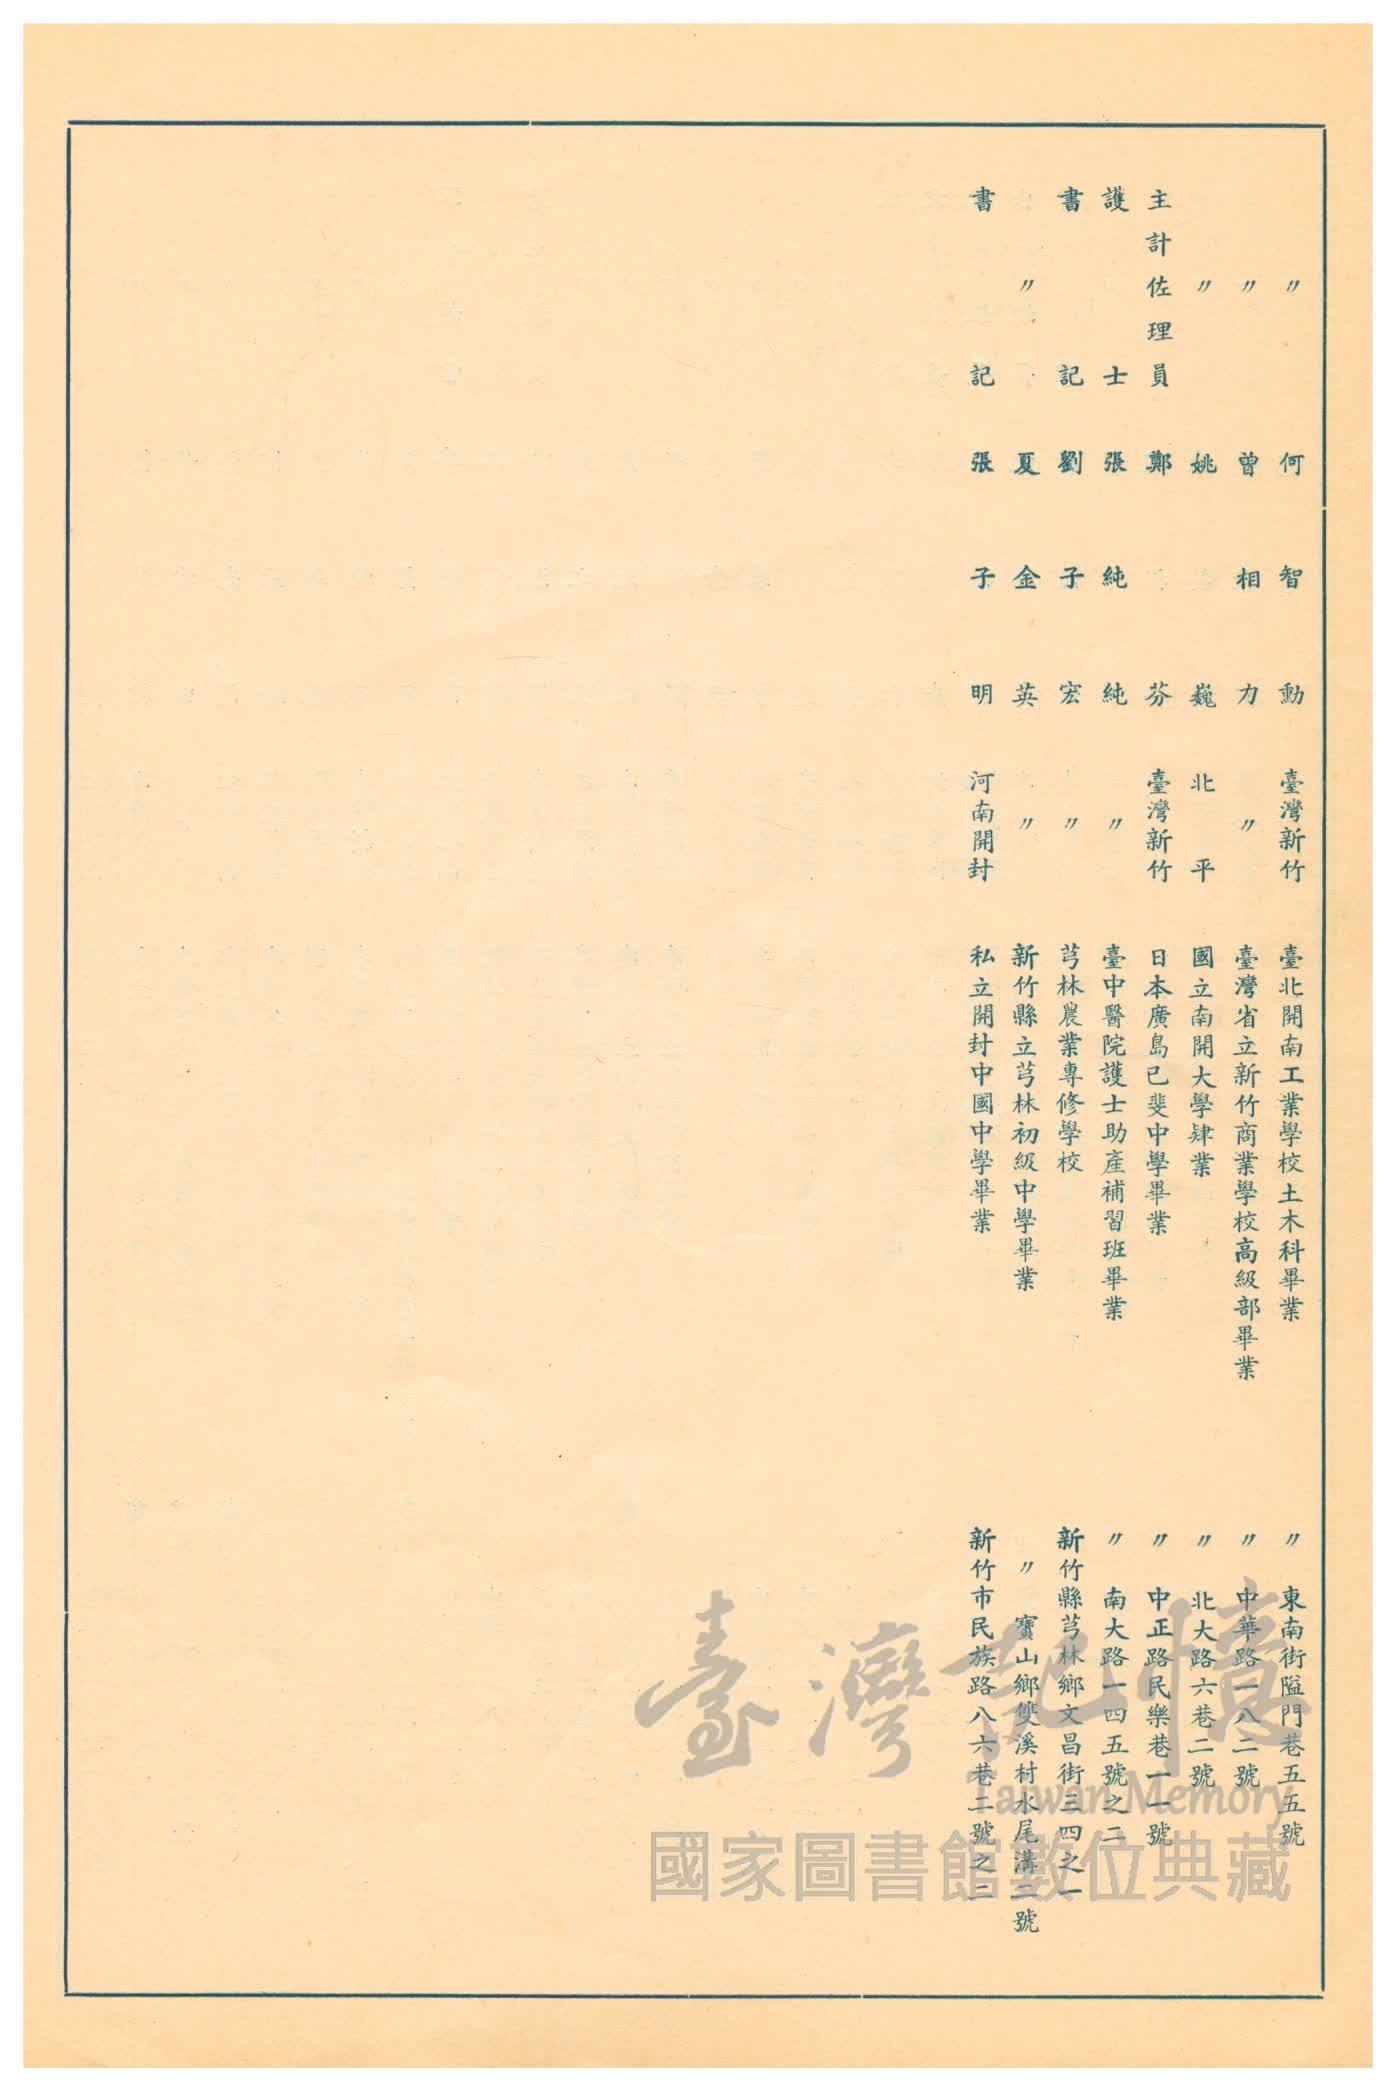 〃 何智勳 臺灣新竹 臺北開南工業學校土木科畢業 〃東南街隘門巷五五號
〃 曾相力 〃 臺灣省立新竹商業學校高級部畢業 〃中華路一八二號
〃 姚巍 北平 國立南開大學肄業 〃北大路六巷二號
主計佐理員 鄭芬 臺灣新竹 日本廣島已斐中學畢業 〃中正路民樂巷一一號
護士 張純純 〃 臺中醫院護士助產補習班畢業 〃南大路一四五號之二
書記 劉子宏 〃 芎林農業專修學校 新竹縣芎林鄉文昌街三四之一
〃 夏金英 〃 新竹縣立芎林初級中學畢業 〃寶山鄉雙溪村水尾溝二號
書記 張子明 河南開封 私立開封中國中學畢業 新竹市民族路八六巷二號之二
臺灣記憶
Taiwan Memory
國家圖書館數位典藏